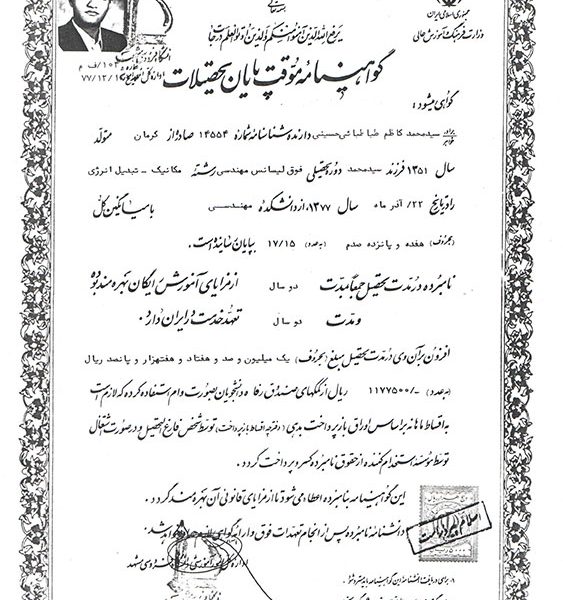 جمهوری اسلامی ایران
وزارت فرهنگ و آموزش عالی
یرفع الله الذین آمنوا منکم والذین اوتوا العلم درجات
گواهینامه موقت پایان تحصیلات
گواهی میشود :
برادر خواهر سیدمحمد کاظم طباطبائی حسینی دارنده شناسنامه شماره ۱۴۵۵۴ صادره از کرمان متولد
سال ۱۳۵۱ فرزند سیدمحمد دوره تحصیلی فوق لیسانس مهندسی رشته مکانیک - تبدیل انرژی
را در تاریخ ۲۲/ آذر ماه سال ۱۳۷۷، از دانشکده مهندسی با میانگین کل
(بحروف) هفده و پانزده صدم (بعدد) ۱۷/۱۵ بپایان رسانیده است.
نامبرده در مدت تحصیل جمعاً بمدت دو سال از مزایای آموزش رایگان بهره مند بوده
و مدت دو سال تعهد خدمت در ایران دارد.
افزون بر آن وی در مدت تحصیل مبلغ (بحروف) یک میلیون و صد و هفتاد و هفتهزار و پانصد ریال
(بعدد) ۱۱۷۷۵۰۰/- ریال از کمکهای صندوق رفاه دانشجویان بصورت وام استفاده کرده که لازم است
به اقساط ماهانه بر اساس اوراق بازپرداخت بدهی (دفترچه اقساط بازپرداخت) توسط شخص فارغ التحصیل و در صورت اشتغال
توسط مؤسسه استخدام کننده از حقوق نامبرده کسر و پرداخت گردد.
این گواهینامه بنامبرده اعطا می شود تا از مزایای قانونی آن بهره مند گردد.
دانشنامه نامبرده پس از انجام تعهدات فوق و ارائه گواهی